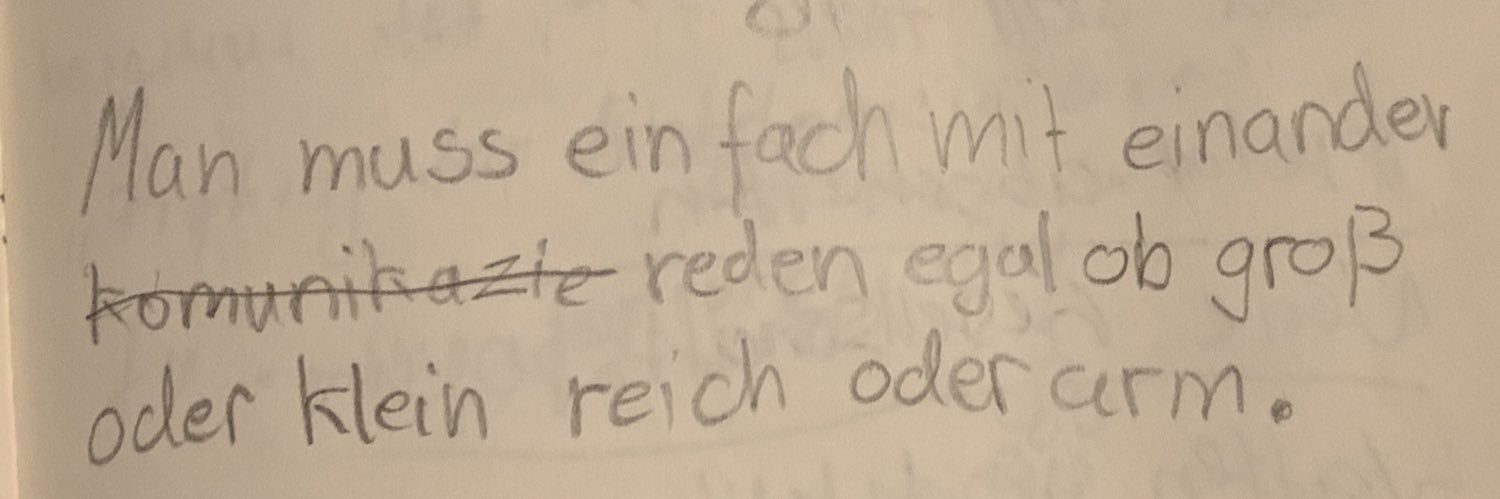 Man muss einfach mit einander
komunikazie reden egal ob groß
oder klein reich oder arm.